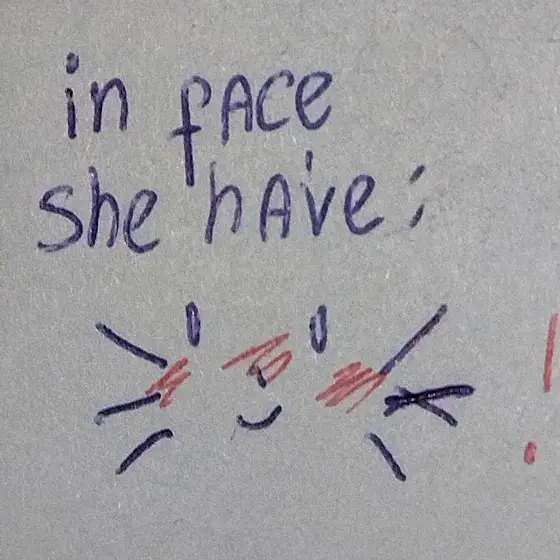 in fACE
she hAve:
!